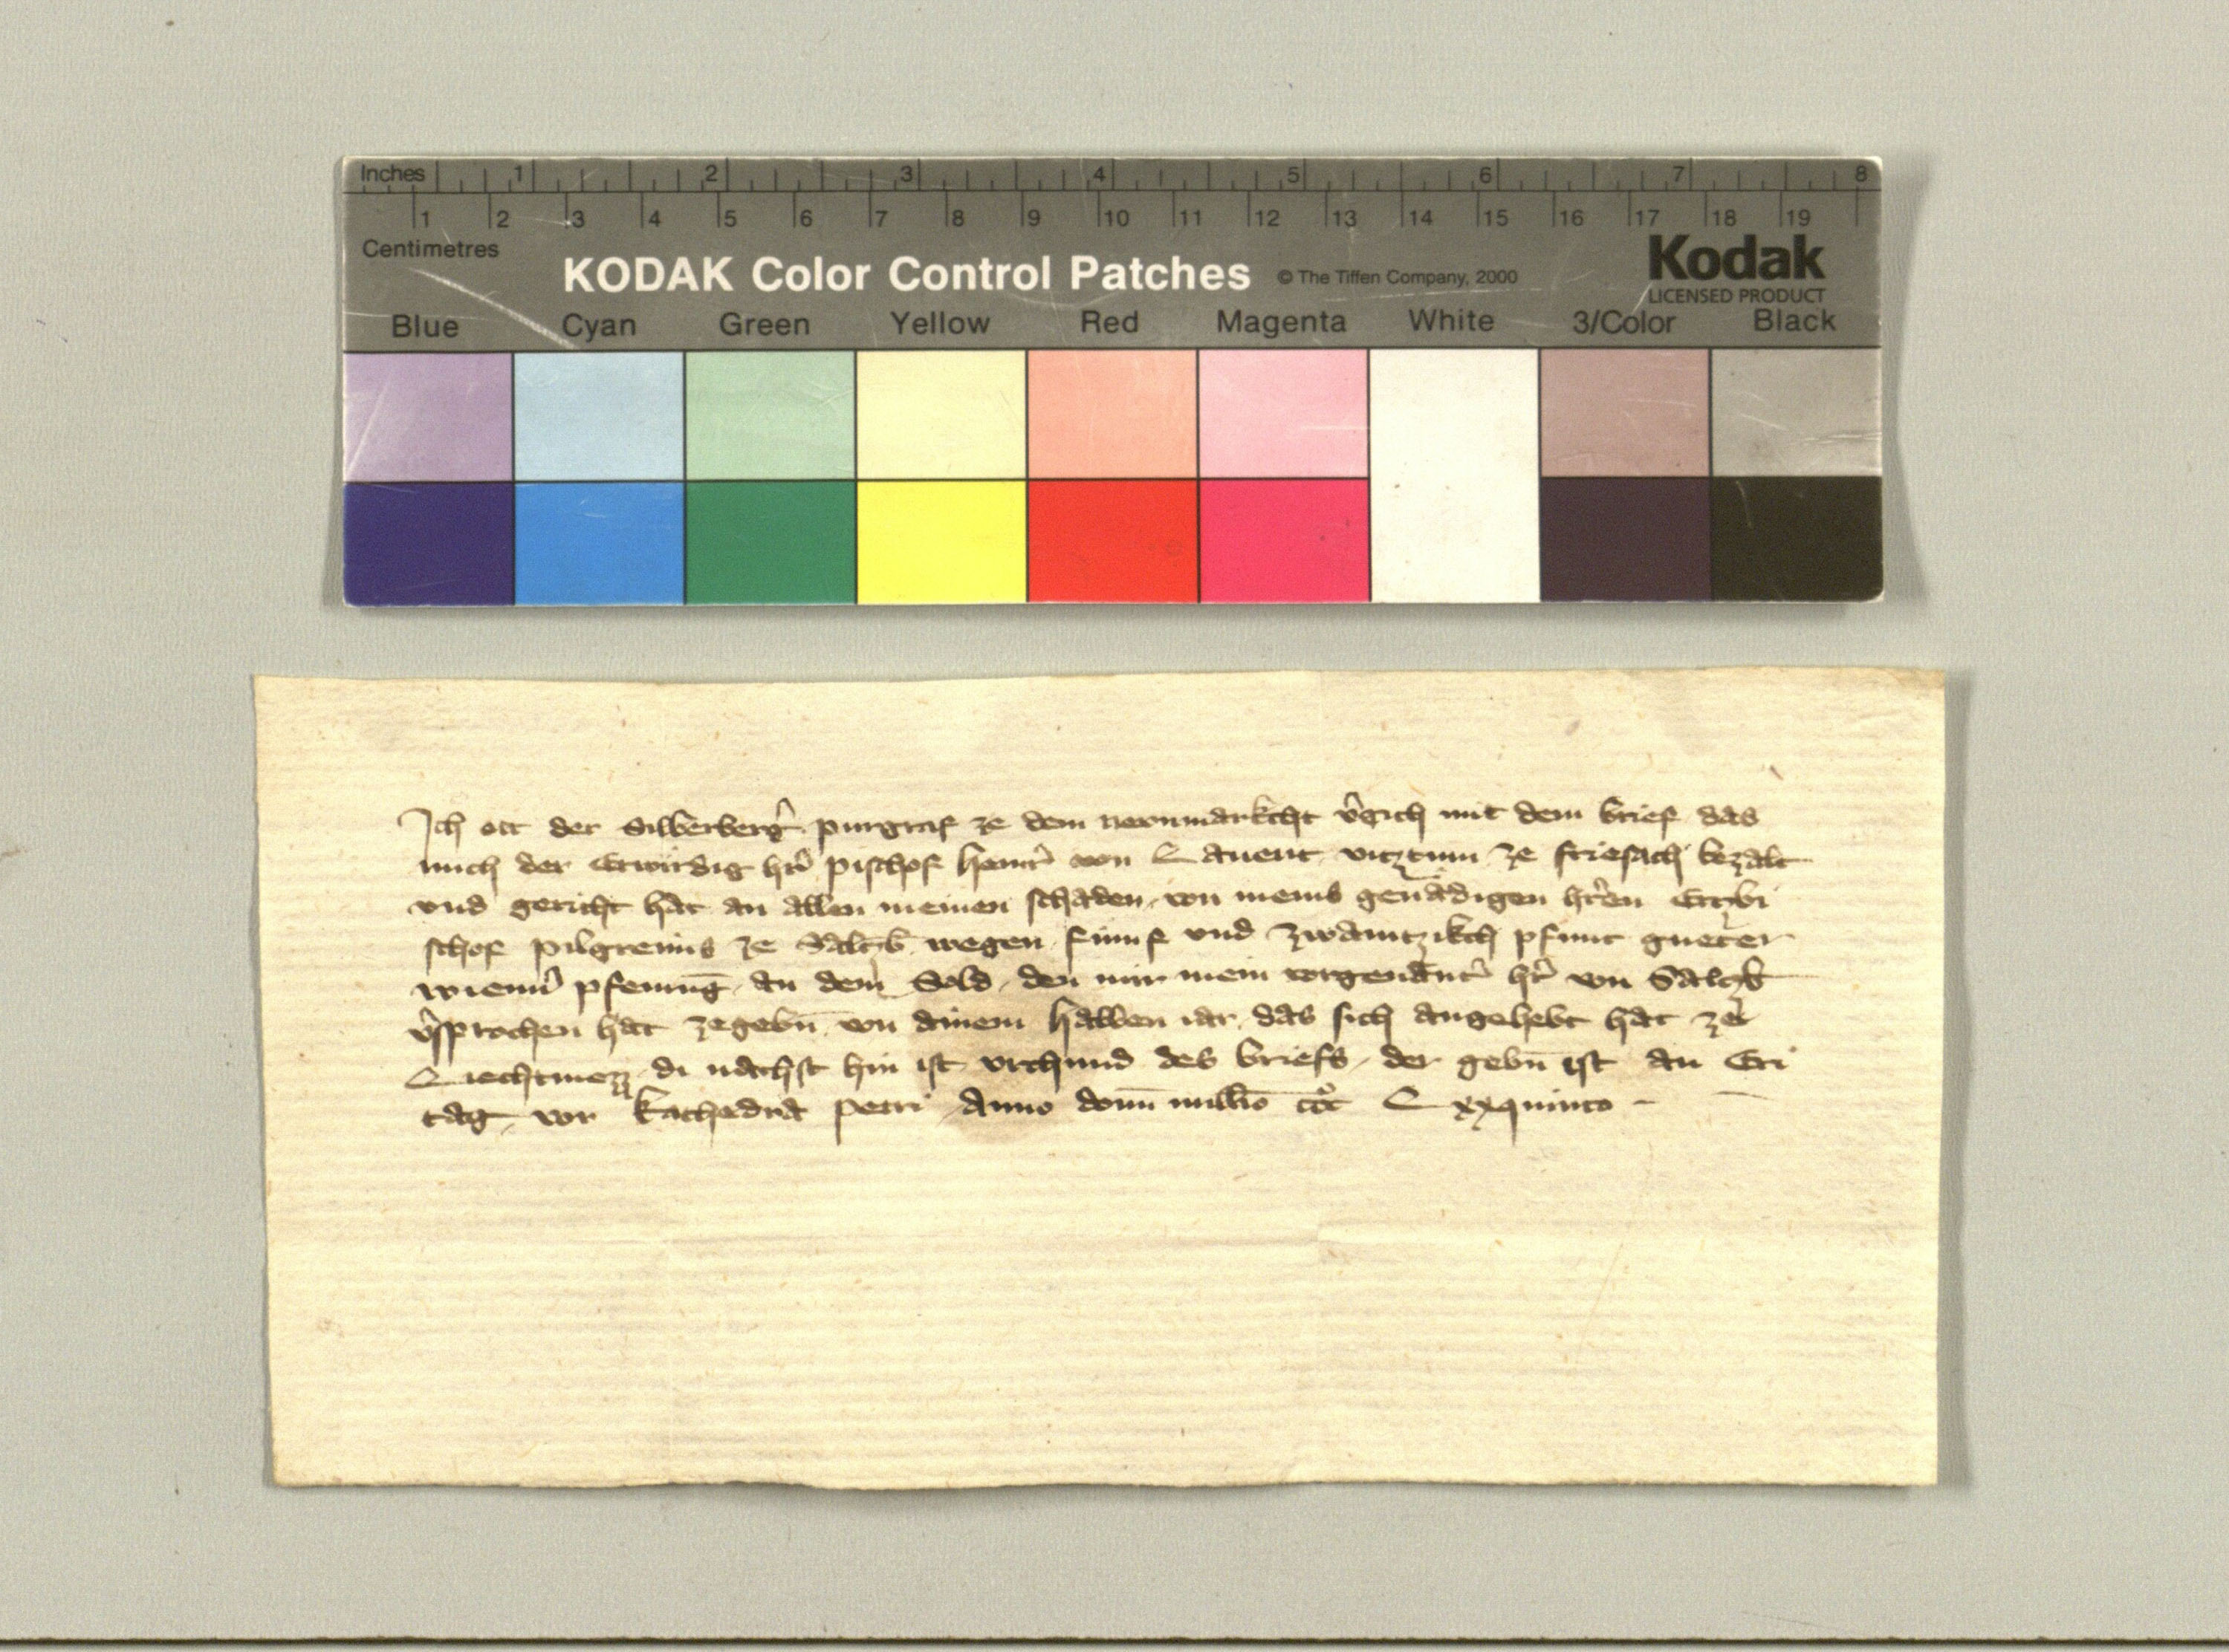 Inches 1 2 3 4 5 6 7 8
1 2 3 4 5 6 7 8 9 10 11 12 13 14 15 16 17 18 19
Centimetres
KODAK Color Control Patches © The Tiffen Company, 2000 Kodak
LICENSED PRODUCT
Blue Cyan Green Yellow Red Magenta White 3/Color Black
Ich ott der Silberberg̉ purgraf ze dem newnmarkcht v̉gich mit dem brief das
mich der Erwirdig hr̉ pischof heinr̉ von Lauent vitztum ze friesach bezalt
vnd gericht hat an allen meinen schaden von meins genadigen hr̉en Ertzbi
schof pilgreims ze Saltzb̄ wegen fiimf vnd zwaintzikch pfunt gueter
wienn̉ pfeninḡ an dem Sold den mir mein vorgenant̉ hr̉ von Saltzb̄
v̉sprochen hat zegebn̄ von ainem halben iar das sich angehebt hat ze
Liechtmezz di nachst hin ist vrchund des briefs der gebn̄ ist an Eri
tag vor kathedra petri Anno domī mill̄io ccc̊ Lxxquinto